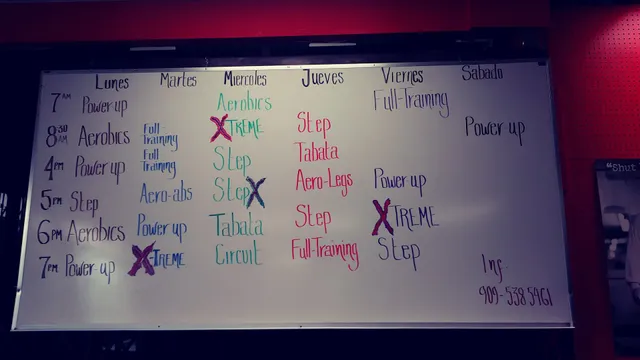 Lunes Martes Miercoles Jueves Viernes Sabado
7 AM Power up Aerobics Full-Training
8 30 AM Aerobics Full Training XTREME Step Power up
4 PM Power up Full Training Step Tabata
5 PM Step Aero-abs StepX Aero-Legs Power up
6 PM Aerobics Power up Tabata Step XTREME
7 PM Power up XTREME Circuit Full-Training Step
Inf.
909-538 5961
"Shut